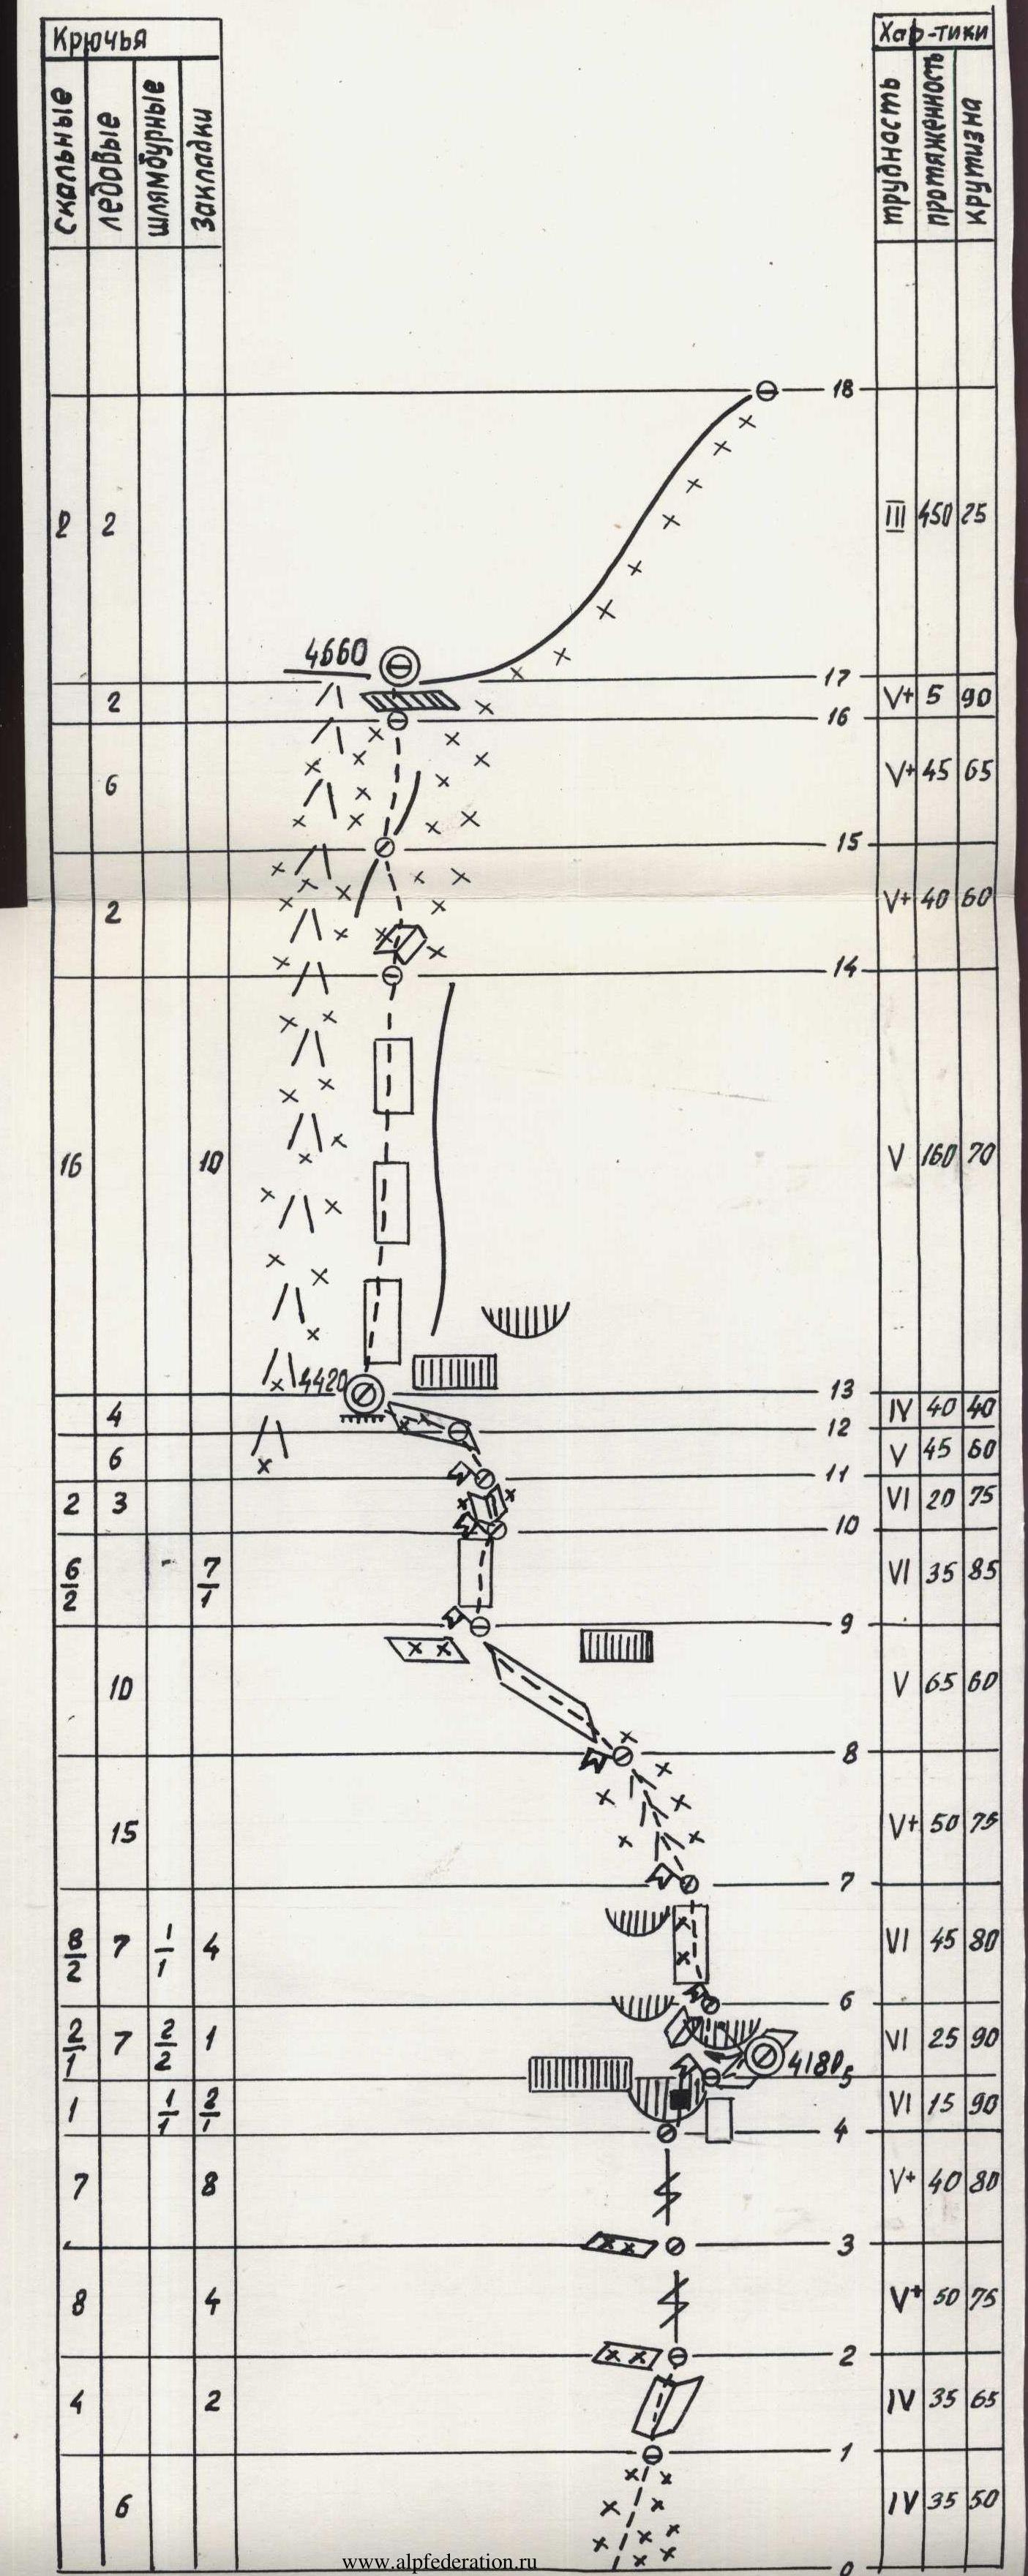 Крючья
Хар-тики
скальные ледовые шлямбурные закладки
трудность протяжённость крутизна
18
2 2 III 450 25
4660
17
2 V+ 5 90
16
6 V+ 45 65
15
2 V+ 40 60
14
16 10 V 160 70
4420
13
4 IV 40 40
12
6 V 45 60
11
2 3 VI 20 75
10
6/2 7/1 VI 35 85
9
10 V 65 60
8
15 V+ 50 75
7
8/2 7 1/1 4 VI 45 80
6
2/1 7 2/2 1 VI 25 90
4180
5
1 1/1 2/1 VI 15 90
4
7 8 V+ 40 80
3
8 4 V+ 50 75
2
4 2 IV 35 65
1
6 IV 35 50
0
www.alpfederation.ru